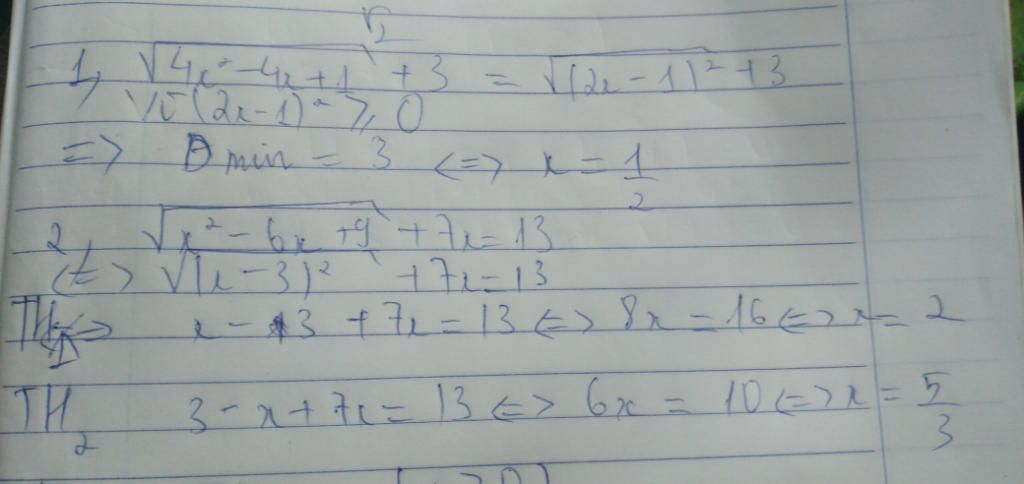 1, √(4x² - 4x + 1) + 3 = √((2x - 1)²) + 3
Vì (2x - 1)² ≥ 0
=> B min = 3 <=> x = 1/2
2, √(x² - 6x + 9) + 7x = 13
<=> √((x - 3)²) + 7x = 13
TH1 <=> x - 3 + 7x = 13 <=> 8x = 16 <=> x = 2
TH2 3 - x + 7x = 13 <=> 6x = 10 <=> x = 5/3